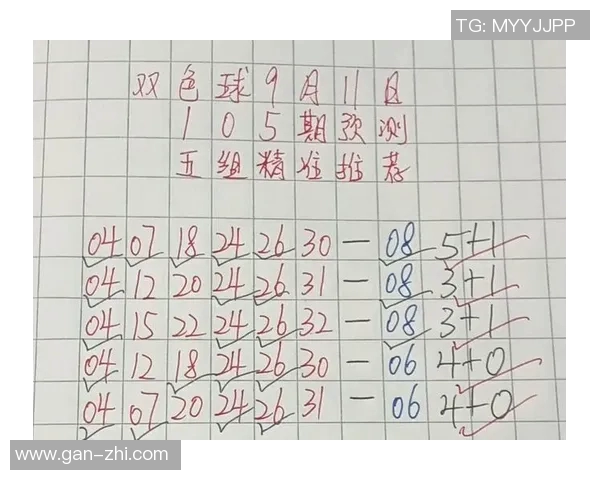 TG: MYYJJPP
双色球9月11日
105期预测
五组精准推荐
04 07 18 24 26 30 — 08 5+1
04 12 20 24 26 31 — 08 3+1
04 15 22 24 26 32 — 08 3+1
04 12 18 24 26 30 — 06 4+0
04 07 20 24 26 31 — 06 4+0
www.gan-zhi.com